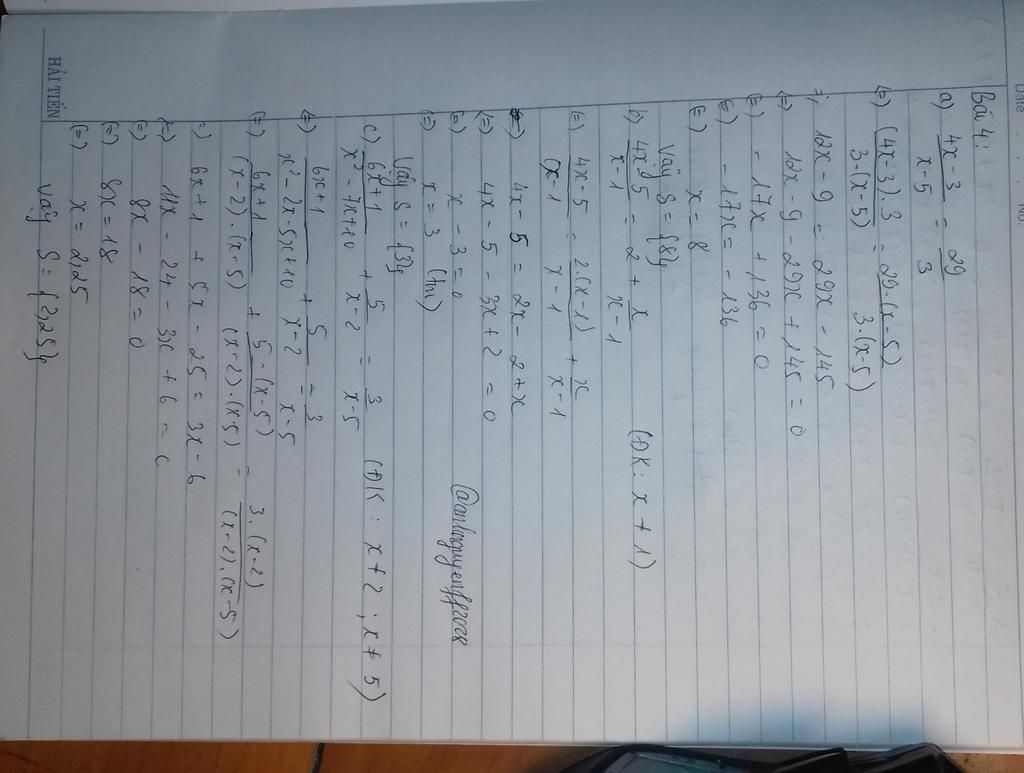 Date
No.
Bài 4:
a) 4x-3 / x-5 = 29 / 3
(=) (4x-3).3 / 3.(x-5) = 29.(x-5) / 3.(x-5)
12x - 9 = 29x - 145
(=) 12x - 9 - 29x + 145 = 0
(=) -17x + 136 = 0
(=) -17x = -136
(=) x = 8
Vậy S = {8}
b) 4x-5 / x-1 = 2 + x / x-1 (ĐK: x ≠ 1)
(=) 4x-5 / x-1 = 2.(x-1) / x-1 + x / x-1
(=) 4x-5 = 2x - 2 + x
(=) 4x - 5 - 3x + 2 = 0
(=) x - 3 = 0
(=) x = 3 (tm)
Vậy S = {3}
c) 6x+1 / x² - 7x+10 + 5 / x-2 = 3 / x-5 (ĐK: x ≠ 2 ; x ≠ 5)
(=) 6x+1 / x² - 2x - 5x + 10 + 5 / x-2 = 3 / x-5
(=) 6x+1 / (x-2).(x-5) + 5.(x-5) / (x-2).(x-5) = 3.(x-2) / (x-2).(x-5)
(=) 6x + 1 + 5x - 25 = 3x - 6
(=) 11x - 24 - 3x + 6 = 0
(=) 8x - 18 = 0
(=) 8x = 18
(=) x = 2,25
Vậy S = {2,25}
HẢI TIẾN